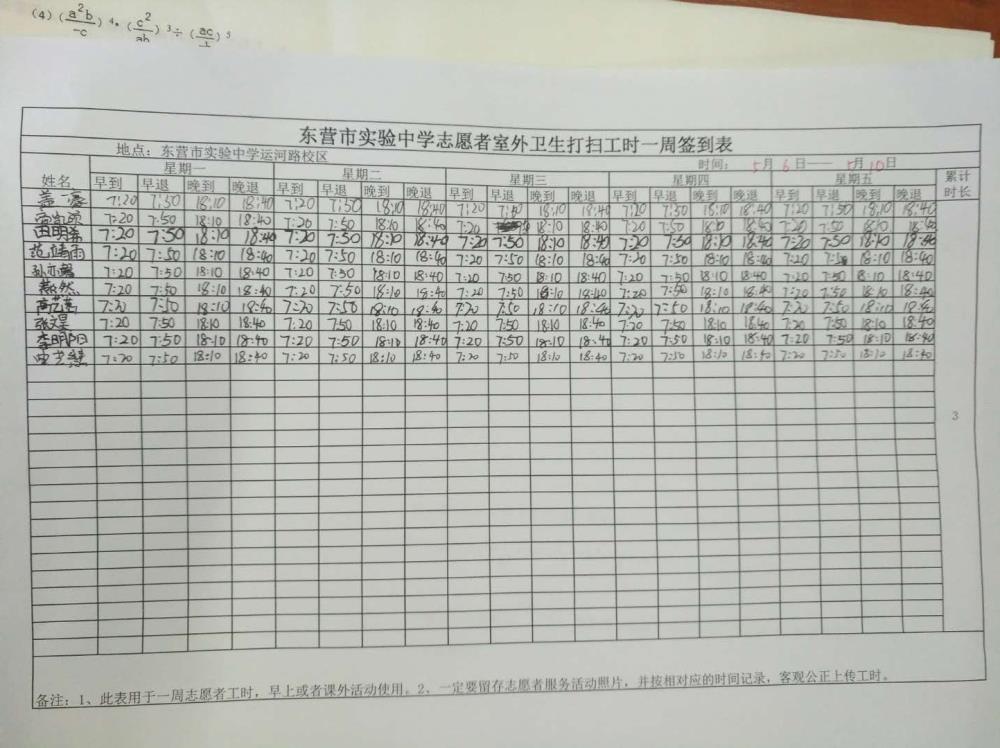 (4) (a²b/-c)⁴·(c²/ab)³÷(ac/)⁵
东营市实验中学志愿者室外卫生打扫工时一周签到表
地点：东营市实验中学运河路校区 时间：5月6日——5月10日
姓名 星期一 星期二 星期三 星期四 星期五 累计时长
早到 早退 晚到 晚退 早到 早退 晚到 晚退 早到 早退 晚到 晚退 早到 早退 晚到 晚退 早到 早退 晚到 晚退
7:20 7:50 18:10 18:40 7:20 7:50 18:10 18:40 7:20 7:50 18:10 18:40 7:20 7:50 18:10 18:40 7:20 7:50 18:10 18:40
7:20 7:50 18:10 18:40 7:20 7:50 18:10 18:40 7:20 18:10 18:40 7:20 7:50 18:10 18:40 7:20 7:50 18:10 18:40
田明 7:20 7:50 18:10 18:40 7:20 7:50 18:10 18:40 7:20 7:50 18:10 18:40 7:20 7:50 18:10 18:40 7:20 7:50 18:10 18:40
范靖雨 7:20 7:50 18:10 18:40 7:20 7:50 18:10 18:40 7:20 7:50 18:10 18:40 7:20 7:50 18:10 18:40 7:20 7:50 18:10 18:40
孙亦 7:20 7:50 18:10 18:40 7:20 7:50 18:10 18:40 7:20 7:50 18:10 18:40 7:20 7:50 18:10 18:40 7:20 7:50 18:10 18:40
然 7:20 7:50 18:10 18:40 7:20 7:50 18:10 18:40 7:20 7:50 18:10 18:40 7:20 7:50 18:10 18:40 7:20 7:50 18:10 18:40
7:20 7:50 18:10 18:40 7:20 7:50 18:10 18:40 7:20 7:50 18:10 18:40 7:20 7:50 18:10 18:40 7:20 7:50 18:10 18:40
张文昊 7:20 7:50 18:10 18:40 7:20 7:50 18:10 18:40 7:20 7:50 18:10 18:40 7:20 7:50 18:10 18:40 7:20 7:50 18:10 18:40
李明阳 7:20 7:50 18:10 18:40 7:20 7:50 18:10 18:40 7:20 7:50 18:10 18:40 7:20 7:50 18:10 18:40 7:20 7:50 18:10 18:40
7:20 7:50 18:10 18:40 7:20 7:50 18:10 18:40 7:20 7:50 18:10 18:40 7:20 7:50 18:10 18:40 7:20 7:50 18:10 18:40
3
备注：1、此表用于一周志愿者工时，早上或者课外活动使用。2、一定要留存志愿者服务活动照片，并按相对应的时间记录，客观公正上传工时。